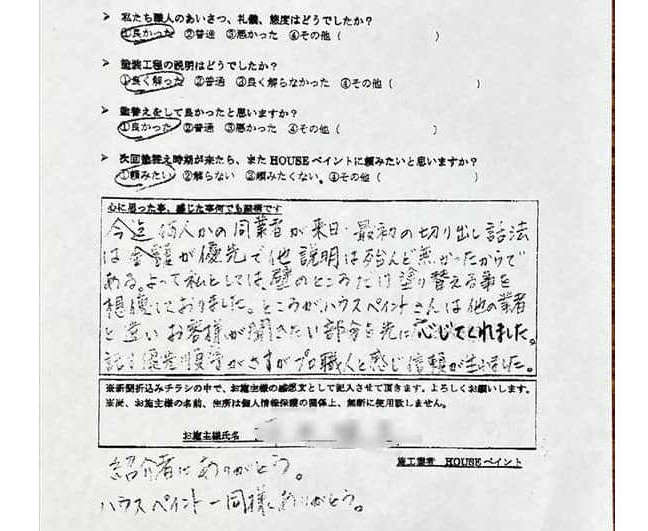 ➢ 私たち職人のあいさつ、礼儀、態度はどうでしたか？
①良かった ②普通 ③悪かった ④その他（ ）
➢ 塗装工程の説明はどうでしたか？
①良く解った ②普通 ③良く解らなかった ④その他（ ）
➢ 塗替えをして良かったと思いますか？
①良かった ②普通 ③悪かった ④その他（ ）
➢ 次回塗替え時期が来たら、またHOUSEペイントに頼みたいと思いますか？
①頼みたい ②解らない ③頼みたくない。④その他（ ）
心に思った事、感じた事何でも結構です
今迄何人かの同業者が来日・最初の切り出し話法
は金額が優先で他説明は殆んど無かったからで
ある。よって私としては、壁のところだけ塗り替える事を
想像しておりました。ところがハウスペイントさんは他の業者
と違いお客様が聞きたい部分を先に応じてくれました。
話す優先順番がさすがプロ職人と感じ信頼が生れました。
※新聞折込みチラシの中で、お施主様の感想文として記入させて頂きます。よろしくお願いします。
※尚、お施主様の名前、住所は個人情報保護の関係上、無断に使用致しません。
お施主様氏名
施工業者 HOUSEペイント
紹介者にありがとう。
ハウスペイント一同様にありがとう。